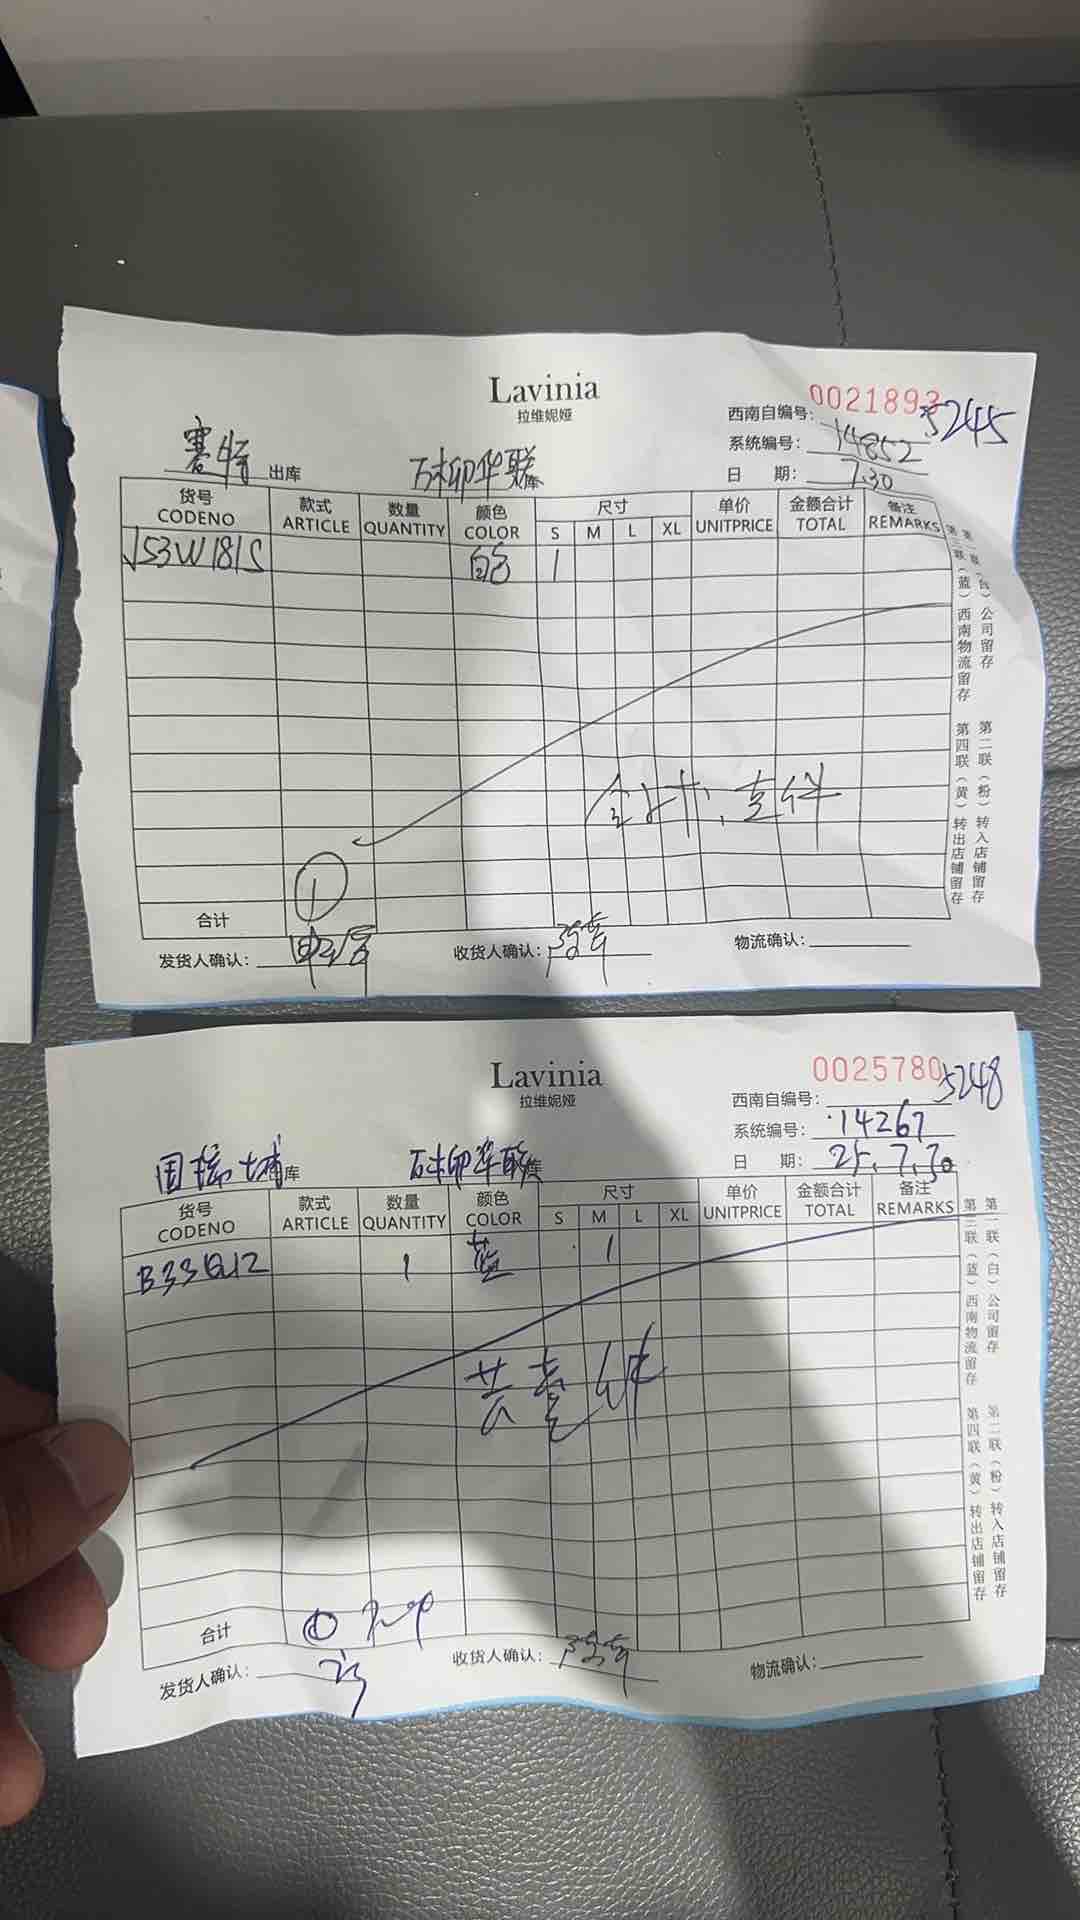 Lavinia
拉维妮娅
0021893
西南自编号: 5245
系统编号: 14852
日 期: 7.30
赛特 出库 石柳华联 库
货号 款式 数量 颜色 尺寸 单价 金额合计 备注
CODENO ARTICLE QUANTITY COLOR S M L XL UNITPRICE TOTAL REMARKS
J53W181S 白色 1
壹件
①
合计
发货人确认: 收货人确认: 物流确认:
第一联(白)公司留存 第二联(粉)转入店铺留存
第三联(蓝)西南物流留存 第四联(黄)转出店铺留存
Lavinia
拉维妮娅
0025780
西南自编号: 5248
系统编号: 14267
日 期: 25.7.30
国瑞城 出库 石柳华联 库
货号 款式 数量 颜色 尺寸 单价 金额合计 备注
CODENO ARTICLE QUANTITY COLOR S M L XL UNITPRICE TOTAL REMARKS
1 蓝 1
共壹件
合计 ①
发货人确认: 收货人确认: 物流确认:
第一联(白)公司留存 第二联(粉)转入店铺留存
第三联(蓝)西南物流留存 第四联(黄)转出店铺留存